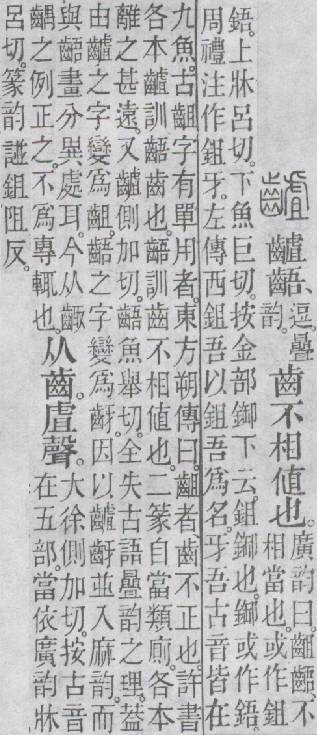 䶥齬、逗。疊韵。齒不相値也。廣韵曰。齟齬、不
相當也。或作鉏
鋙。上牀呂切。下魚巨切。按金部䥏下云。鉏䥏也。䥏或作鋙。
周禮注作鉏牙。左傳西鉏吾以鉏吾爲名。牙吾古音皆在
九魚。古齟字有單用者。東方朔傳曰。齟者、齒不正也。許書
各本䶥訓齬齒也。齬訓齒不相値也。二篆自當類廁。各本
離之甚遠。又䶥側加切。齬魚舉切。全失古語疊韵之理。葢
由䶥之字變爲齟。齬之字變爲齖。因以䶥齖並入麻韵。而
與齬畫分異處耳。今从齱
齵之例正之。不爲專輒也。从齒虘聲。大徐側加切。按古音
在五部。當依廣韵牀
呂切。篆韵譜鉏阻反。